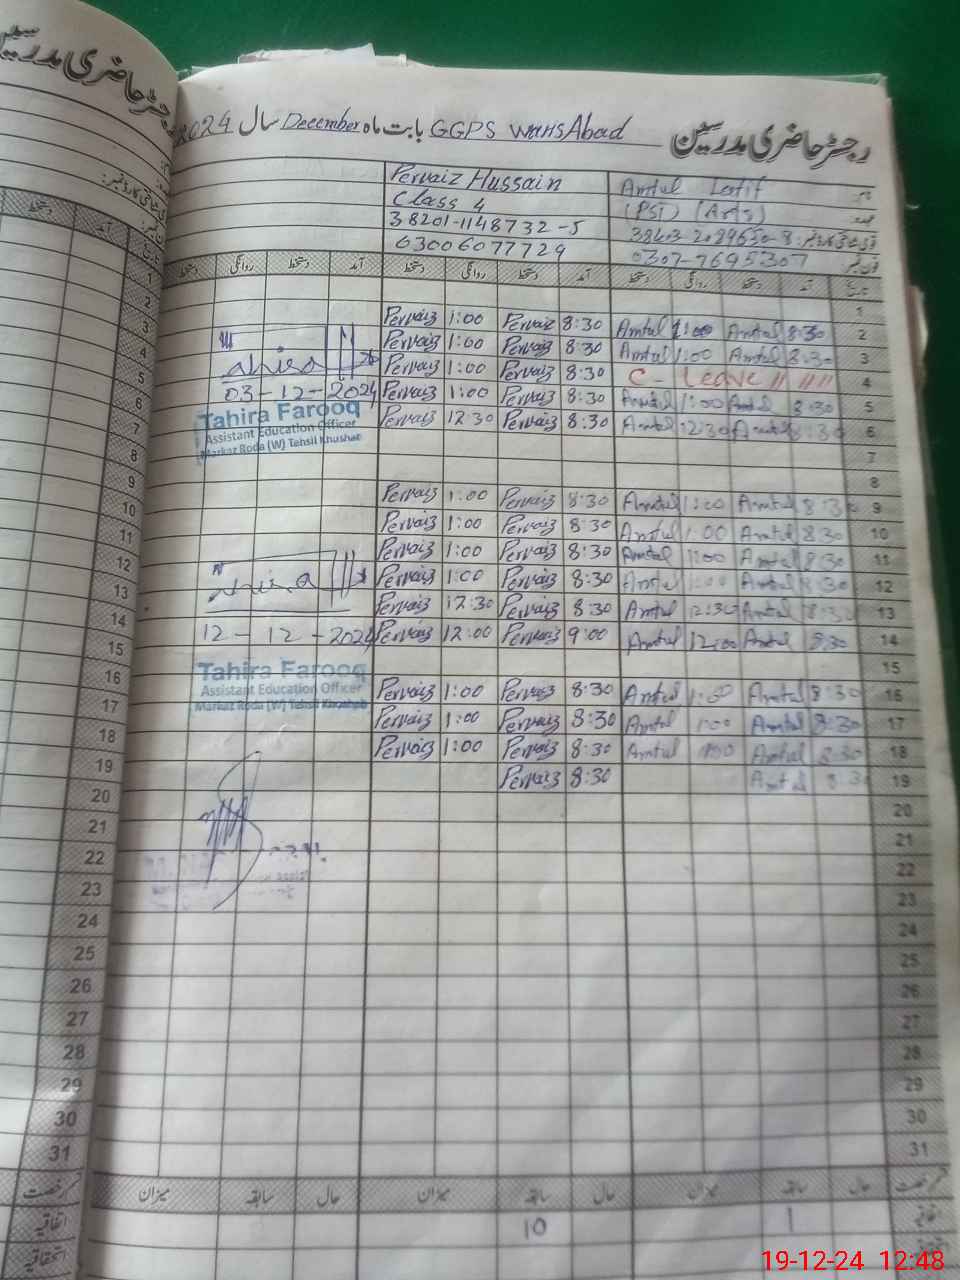 رجسٹر حاضری مدرسین GGPS WarisAbad بابت ماہ December سال 2024
نام Amtul Latif
عہدہ (PST) (Arts)
فون نمبر 0307-7695307
Pervaiz Hussain
Class 4
38201-1148732-5
03006077729
تاریخ آمد دستخط روانگی دستخط آمد دستخط روانگی دستخط آمد دستخط روانگی دستخط
1
2 8:30 Amtul 1:00 Amtul 8:30 Pervaiz 1:00 Pervaiz
3 8:30 Amtul 1:00 Amtul 8:30 Pervaiz 1:00 Pervaiz
4 C - Leave 8:30 Pervaiz 1:00 Pervaiz
5 8:30 Amtul 1:00 Amtul 8:30 Pervaiz 1:00 Pervaiz
6 8:30 Amtul 12:30 Amtul 8:30 Pervaiz 12:30 Pervaiz
7
8
9 8:30 Amtul 1:00 Amtul 8:30 Pervaiz 1:00 Pervaiz
10 8:30 Amtul 1:00 Amtul 8:30 Pervaiz 1:00 Pervaiz
11 8:30 Amtul 1:00 Amtul 8:30 Pervaiz 1:00 Pervaiz
12 8:30 Amtul 1:00 Amtul 8:30 Pervaiz 1:00 Pervaiz
13 8:30 Amtul 12:30 Amtul 8:30 Pervaiz 12:30 Pervaiz
14 8:30 Amtul 12:00 Amtul 9:00 Pervaiz 12:00 Pervaiz
15
16 8:30 Amtul 1:00 Amtul 8:30 Pervaiz 1:00 Pervaiz
17 8:30 Amtul 1:00 Amtul 8:30 Pervaiz 1:00 Pervaiz
18 8:30 Amtul 1:00 Amtul 8:30 Pervaiz 1:00 Pervaiz
19 8:30 Amtul 8:30 Pervaiz
20
21
22
23
24
25
26
27
28
29
30
31
03-12-2024
Tahira Farooq
Assistant Education Officer
Markaz Roda (W) Tehsil Khushab
12-12-2024
Tahira Farooq
Assistant Education Officer
Markaz Roda (W) Tehsil Khushab
حال سابقہ میزان حال سابقہ میزان حال سابقہ میزان
اتفاقیہ 1 10
رجسٹر حاضری مدرسین
تاریخ آمد دستخط
1
2
3
4
5
6
7
8
9
10
11
12
13
14
15
16
17
18
19
20
21
22
23
24
25
26
27
28
29
30
31
اتفاقیہ
استحقاقیہ
19-12-24 12:48